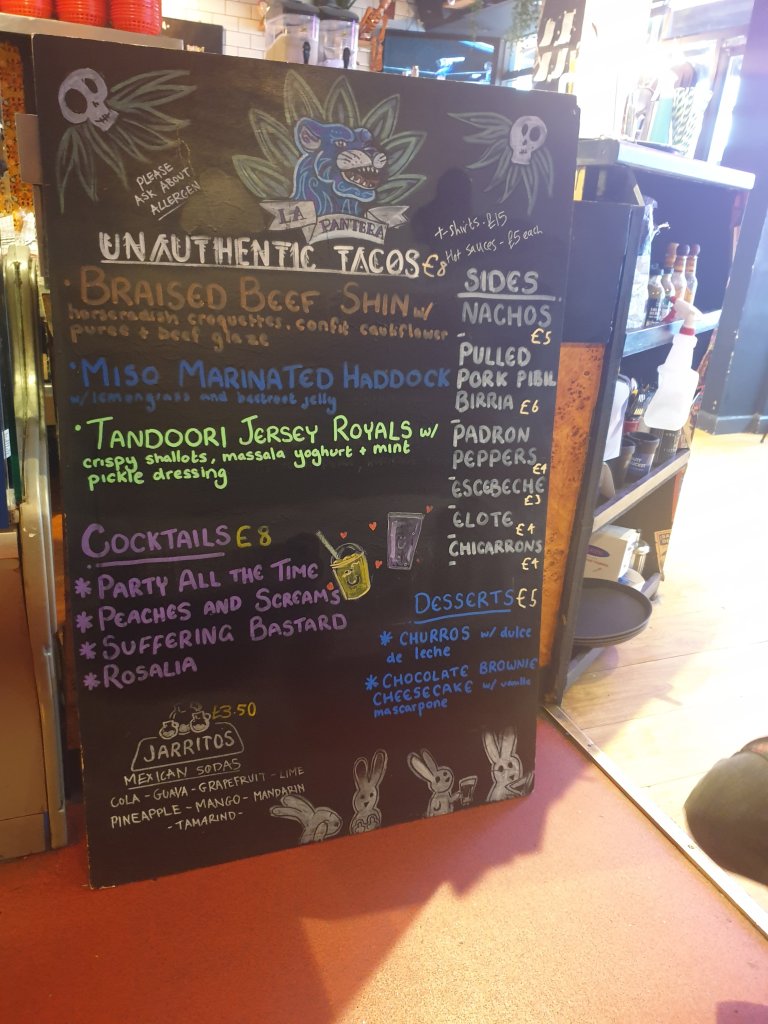 PLEASE
ASK ABOUT
ALLERGEN
LA PANTERA
T-SHIRTS - £15
HOT SAUCES - £5 each
UNAUTHENTIC TACOS £8
• BRAISED BEEF SHIN w/
horseradish croquettes, confit cauliflower
puree + beef glaze
• MISO MARINATED HADDOCK
w/ lemongrass and beetroot jelly
• TANDOORI JERSEY ROYALS w/
crispy shallots, massala yoghurt + mint
pickle dressing
SIDES
NACHOS
£5
PULLED
PORK PIBIL
BIRRIA £6
PADRON
PEPPERS
£4
ESCEBECHE
£3
ELOTE
£4
CHICARRONS
£4
COCKTAILS £8
* PARTY ALL THE TIME
* PEACHES AND SCREAMS
* SUFFERING BASTARD
* ROSALIA
DESSERTS £5
* CHURROS w/ dulce
de leche
* CHOCOLATE BROWNIE
CHEESECAKE w/ vanilla
mascarpone
£3.50
JARRITOS
MEXICAN SODAS
COLA - GUAVA - GRAPEFRUIT - LIME
PINEAPPLE - MANGO - MANDARIN
- TAMARIND -